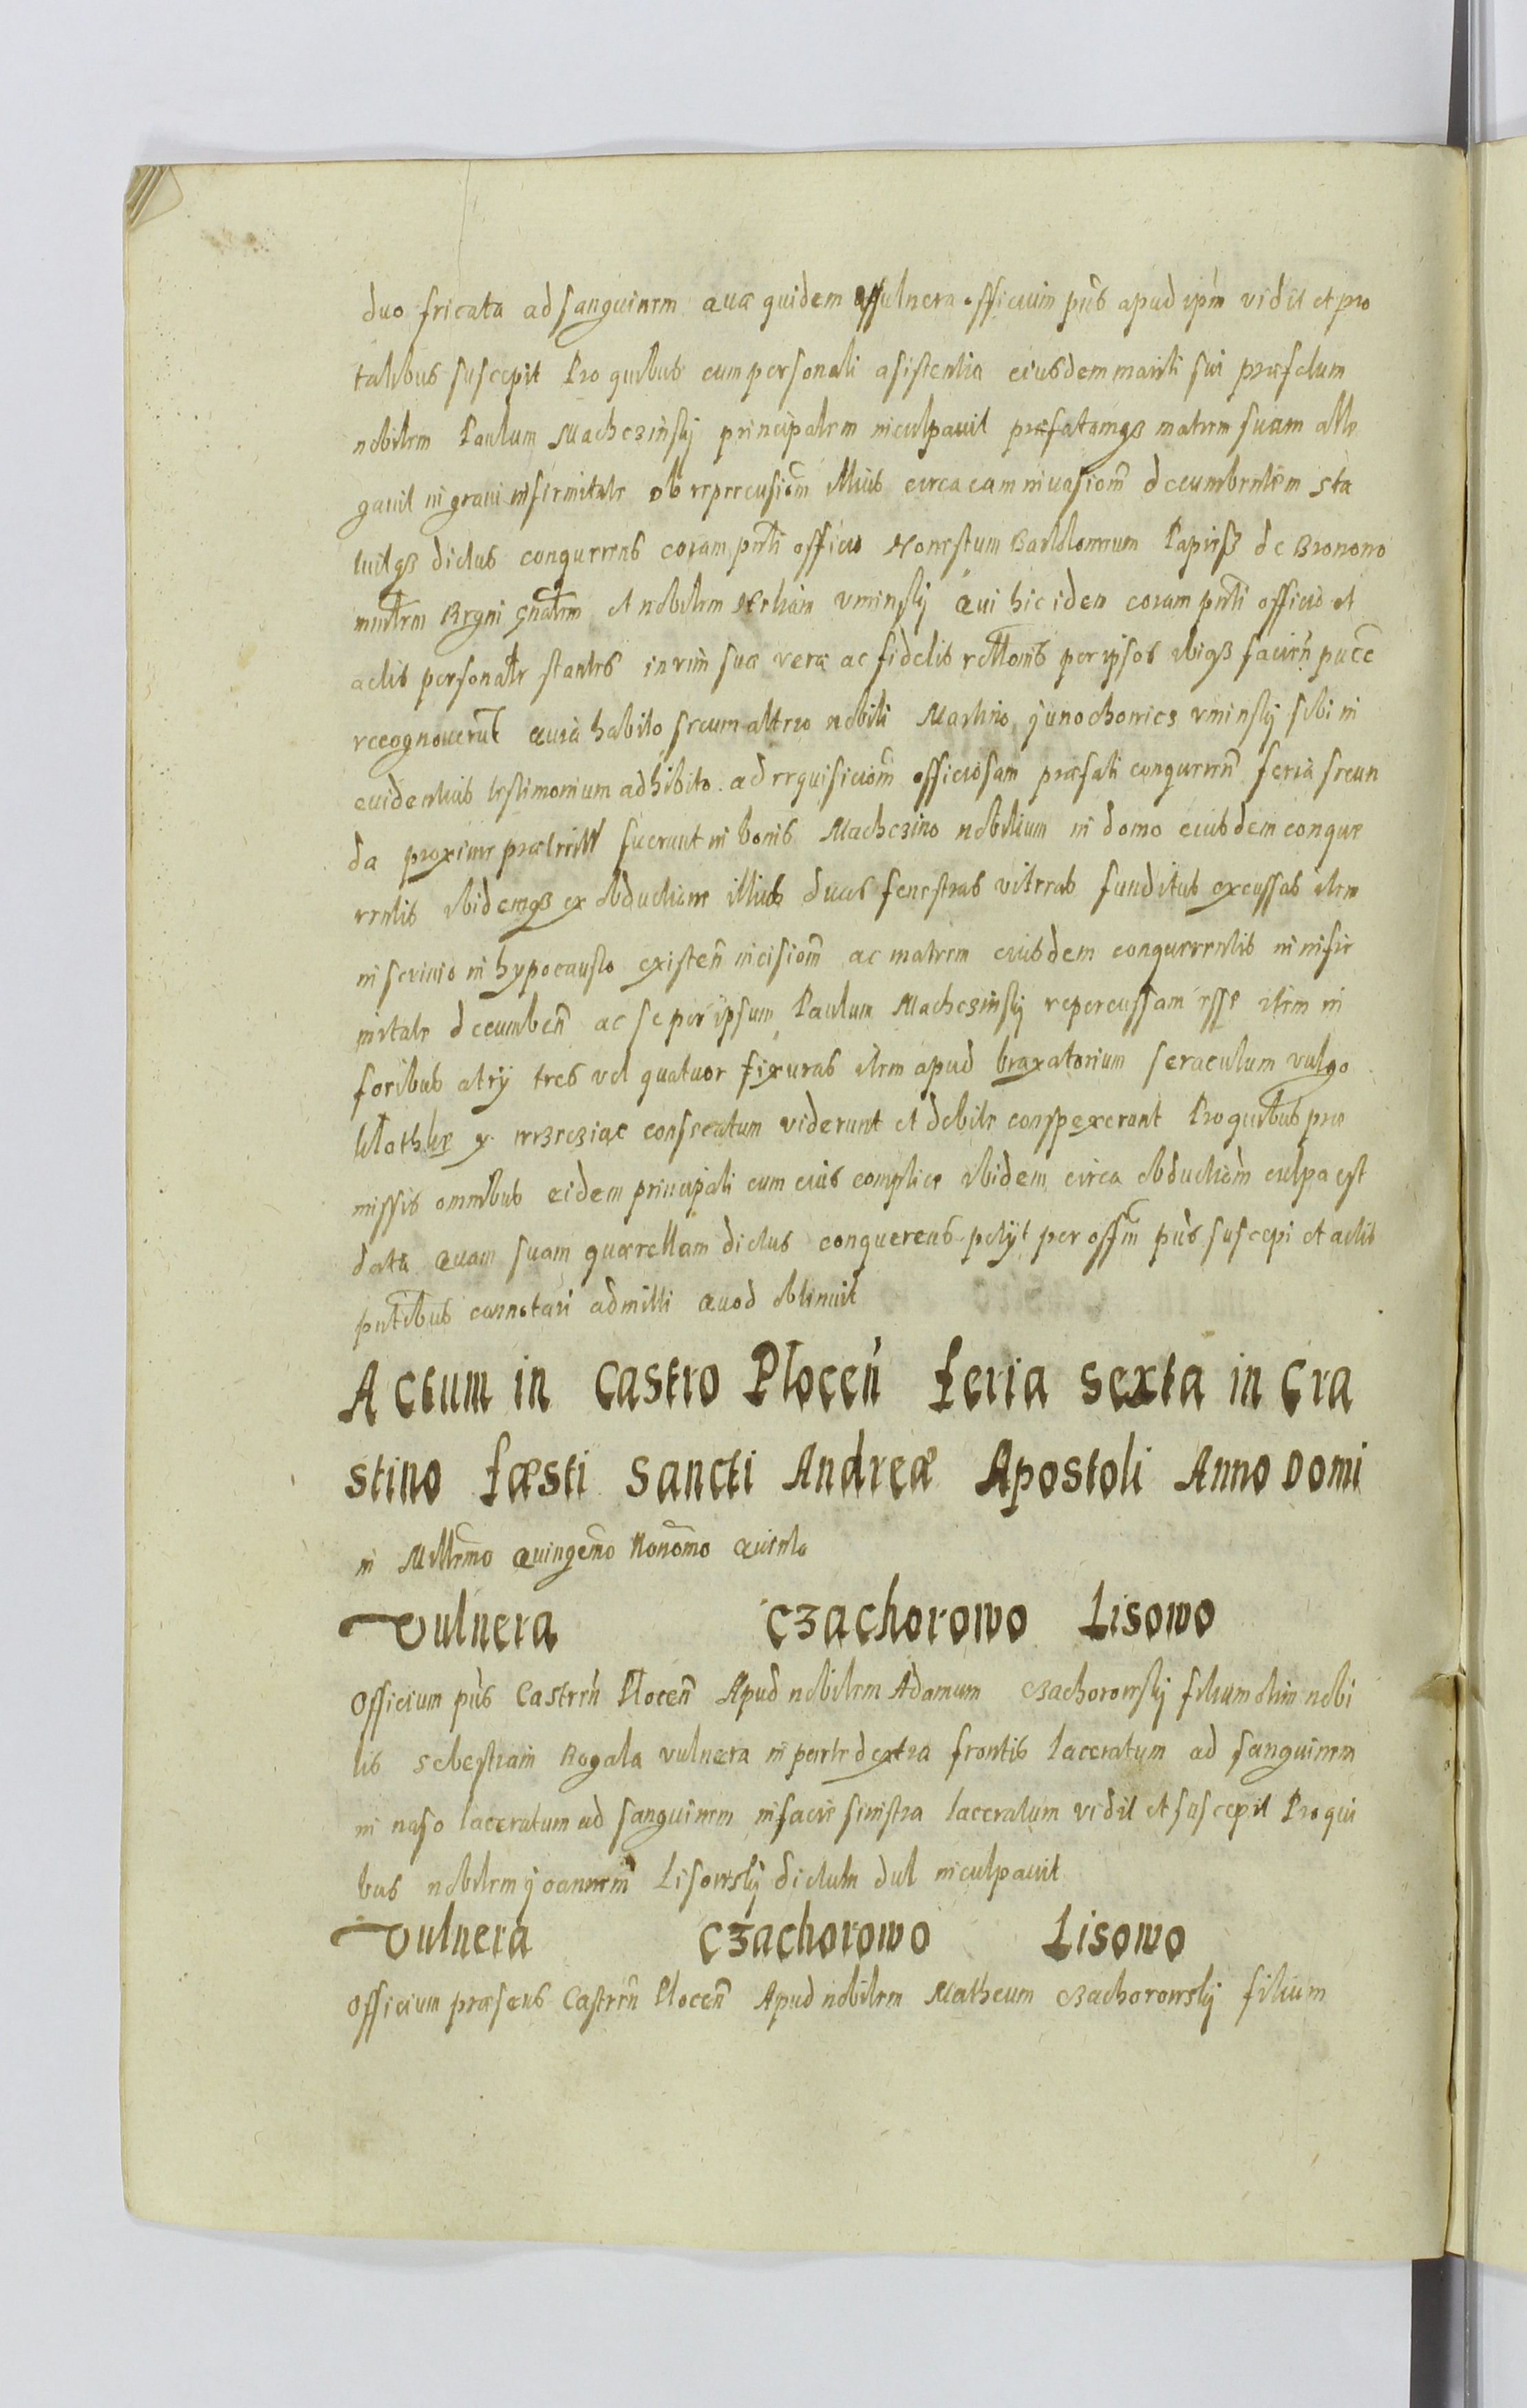 duo fricata ad sanguinem quæ quidem vulnera officium pñs apud ipm̃ vidit et pro
talibus suscepit Pro quibus cum personali asistentia eiusdem mariti sui præfatum
nobilem Paulum Machczinsky principalem inculpauit præfatamqз matrem suam alle
gauit in graui infirmitate ob repercusiom̃ illius circa eam inuasiom̃ decumbentem sta
tuitqз dictus conqueręns coram pñti officio Honestum Bartolomeum Papieß de Bronono
mintrm̃ Regni gñalem et nobilem Vminsky Qui hic idem coram pñti officio et
actis personalr stantes in vim suæ veræ ac fidelis rełłonis per ipsos ibiqз facień
recognouerũt Quia habito secum altero nobili Martino Junochowicz Vminsky sibi in
euidentius testimonium adhibito ad requisiciom̃ officiosam præfati conquereñ feria secun
da proxime præterita fuerunt in bonis Machczino nobilium in domo eiusdem conque
rentis ibidemqз ex obductione illius duas fenestras vitreas funditus excussas item
in scrinio in hypocausto existeñ incisiom̃ ac matrem eiusdem conquerentis in infir
mitate decumbeñ ac se per ipsum Paulum Machczinsky repercussam esse item in
foribus atrij tres vel quatuor fixuras item apud braxatorium seraculum vulgo
consecatum viderunt et debite conspexerunt Pro quibus præ
missis omnibus eidem principali cum eius complice ibidem circa obductiom̃ culpa est
data Quam suam quærellam dictus conquerens petijt per offm̃ pñs suscepi et actis
pñtibus connotari admitti Quod obtinuit
Actum in Castro Płoceń feria sexta in Cra
stino fæsti Sancti Andreæ Apostoli Anno Domi
ni Millemo Quingemo Nonomo Quinto
Vulnera Czachorowo Lisowo
Officium pñs Castreń Płoceñ Apud nobilem Adamum Czachorowsky filium olim nobi
lis Sebestiani Rogala vulnera in parte dextra frontis laceratum ad sanguinem
in naso laceratum ad sanguinem in facie sinistra laceratum vidit et suscepit Pro qui
bus nobilem Joannem Lisowsky dictum dul inculpauit
Vulnera Czachorowo Lisowo
Officium præsens Castreñ Płoceñ Apud nobilem Matheum Czachorowsky filium